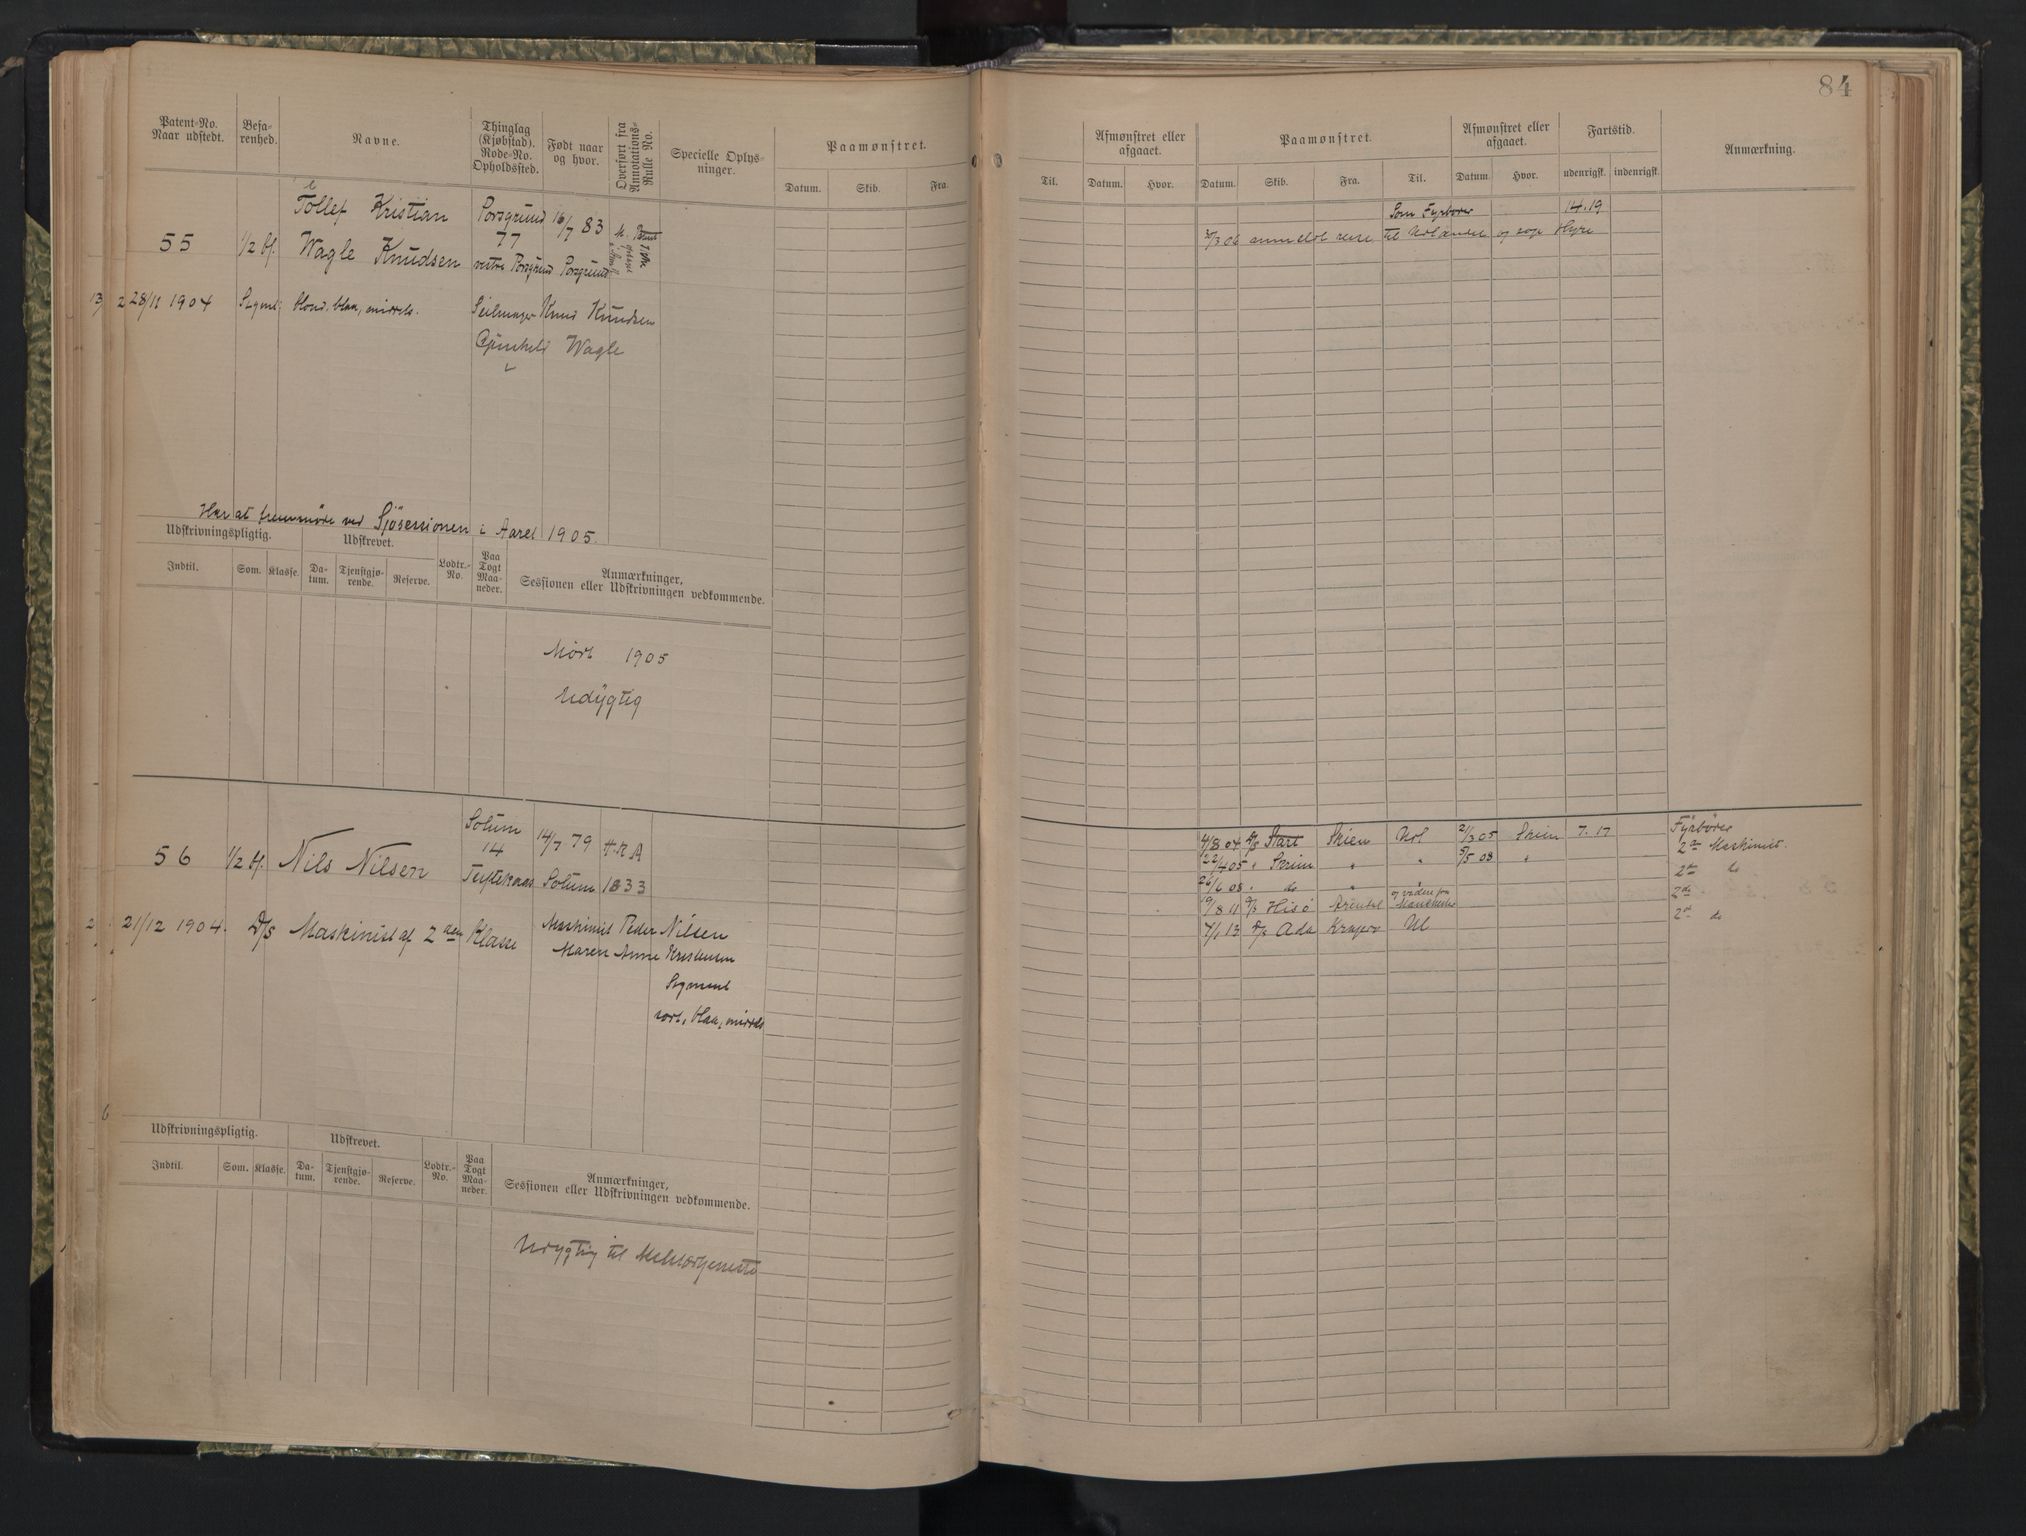 84
Patent-No. Naar udstedt.
Befa-renhed.
Navne.
Thinglag (Kjøbstad). Rode-No. Opholdssted.
Født naar og hvor.
Overført fra Annotations-Rulle No.
Specielle Oplys-ninger.
Paamønstret.
Datum. Skib. Fra.
Afmønstret eller afgaaet.
Til. Datum. Hvor.
Paamønstret.
Datum. Skib. Fra. Til.
Afmønstret eller afgaaet.
Datum. Hvor.
Fartstid.
udenrigsk. indenrigsk.
Anmærkning.
Tollef Kristian Porsgrund 16/7 83
55 1/2 bf. Wagle Knudsen 77
vestre Porsgrund Porsgrund
28/11 1904 blond, blaa, middels. Seilmager Knud Knudsen
Wagle
Som Fyrbøder 14.19
anmeldt reise til Udlandet og søge Hyre
Har at fremmøde ved Sjøsessionen i Aaret 1905.
Udskrivningspligtig. Udskrevet. Lodtr.-No. Paa Togt Maa-neder. Anmærkninger, Sessionen eller Udskrivningen vedkommende.
Indtil. Som. Klasse. Da-tum. Tjenstgjø-rende. Reserve.
Mødt 1905
Udygtig
Solum 14/7 79
56 1/2 bf. Nils Nilsen 14 H.R A
Solum 1833
21/12 1904. D/S Maskinist af 2den Klasse Maskinist Peder Nilsen
Maren Anne Kristensen
Segment
sort, blaa, middels
4/8 04 D/S Start Skien Udl 2/3 05 Skien 7.17 Fyrbøder
22/4 05 " Skrim " " 5/5 08 " 2den Maskinist.
26/6 08 " do " 2den do
19/8 11 D/S Hisö Arendal 2de
7/1 13 D/S Ada Kragerø Ul 2den do
Udskrivningspligtig. Udskrevet. Lodtr.-No. Paa Togt Maa-neder. Anmærkninger, Sessionen eller Udskrivningen vedkommende.
Indtil. Som. Klasse. Da-tum. Tjenstgjø-rende. Reserve.
Udygtig til